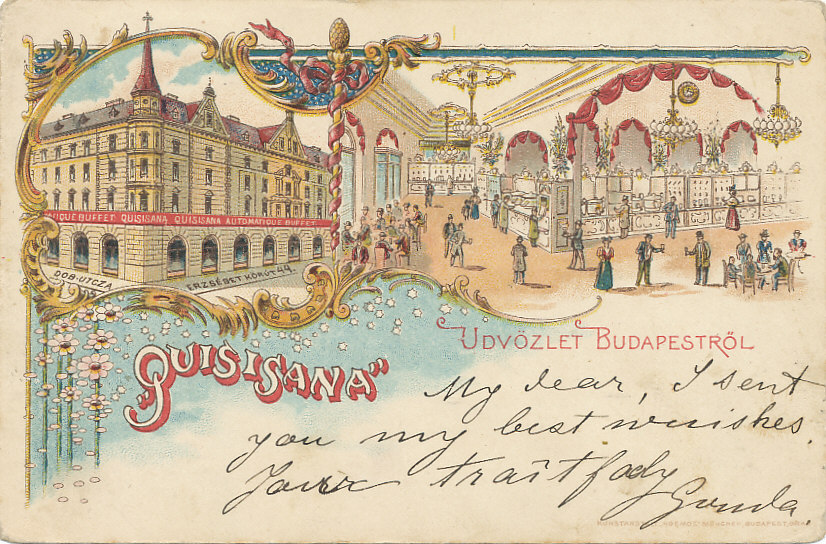 TIQUE BUFFET QUISISANA QUISISANA AUTOMATIQUE BUFFET
DOB-UTCZA
ERZSÉBET KÖRÚT 44.
ÜDVÖZLET BUDAPESTRŐL
„QUISISANA”
My dear, I sent
you my best wuishes.
Your traitfody
Gonda.
MÜNCHEN, BUDAPEST,